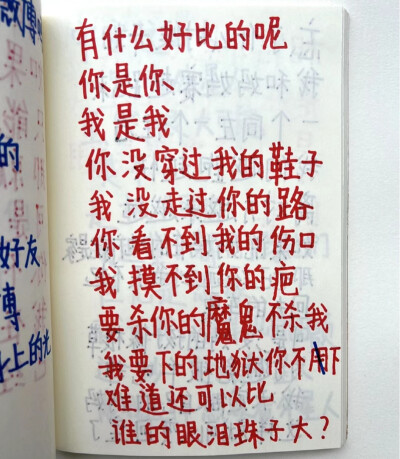 有什么好比的呢
你是你
我是我
你没穿过我的鞋子
我没走过你的路
你看不到我的伤口
我摸不到你的疤
要杀你的魔鬼不杀我
我要下的地狱你不用下
难道还可以比
谁的眼泪珠子大?
的
好友
博
上的光